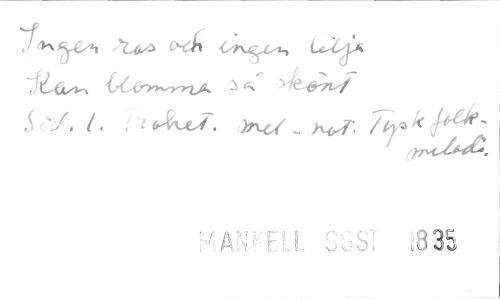 Ingen ros och ingen lilja
Kan blomma så skönt
Sid. 1. Trohet. mel-not. Tysk folk-
melodi.
MANKELL SGST 1835